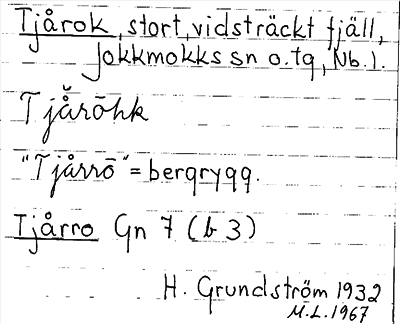 Tjårok, stort, vidsträckt fjäll,
Jokkmokks sn o. tg, Nb. l.
Tjårōhk
"Tjårrō" = bergrygg.
Tjårro Gn 7 (b 3)
H. Grundström 1932
M.L. 1967